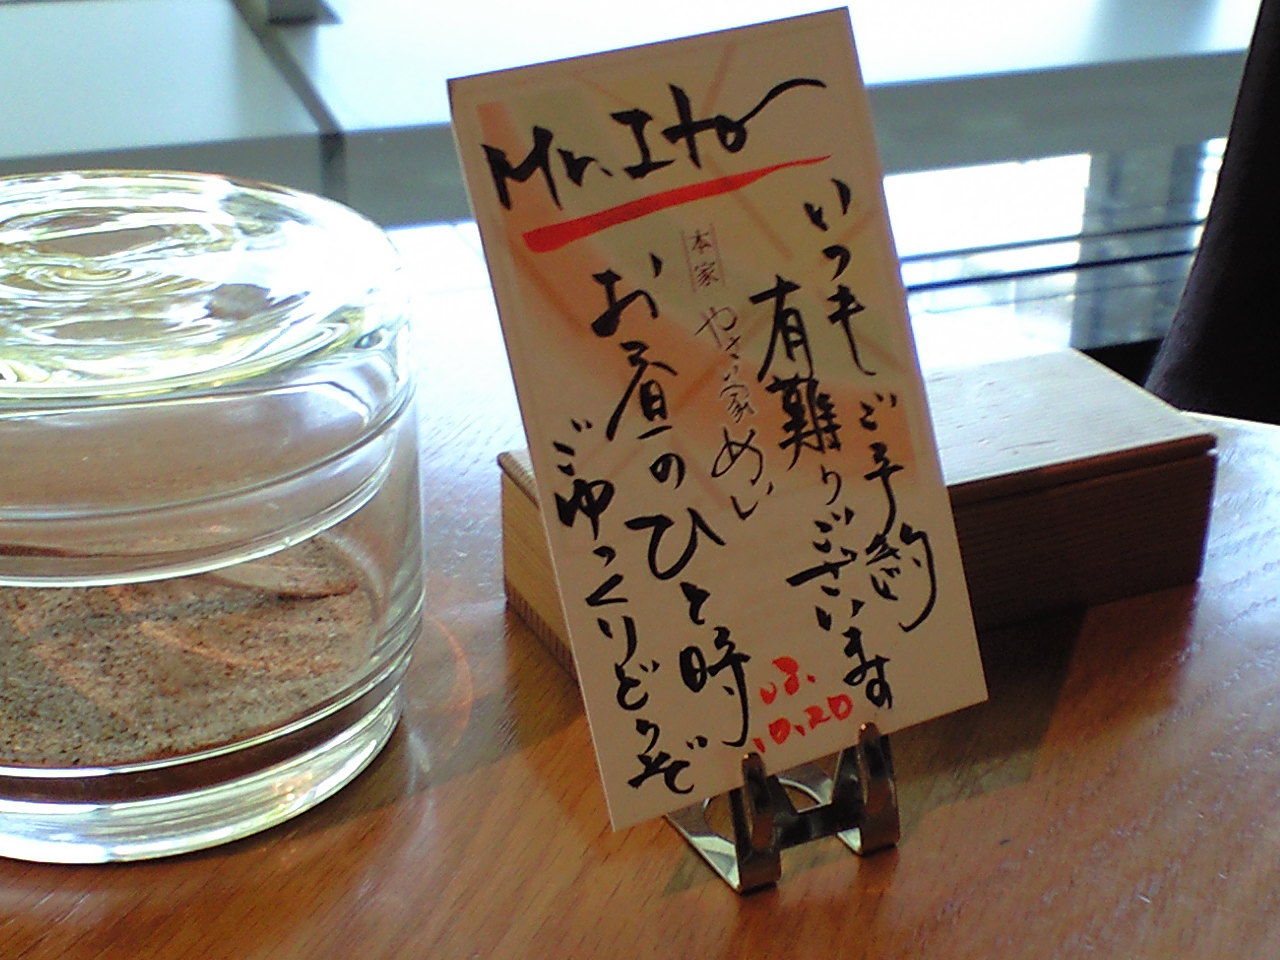 Mr. Ito
いつもご予約
有難りございます
本家
やさい家めい
お昼のひと時
ごゆっくりどうぞ
10.20